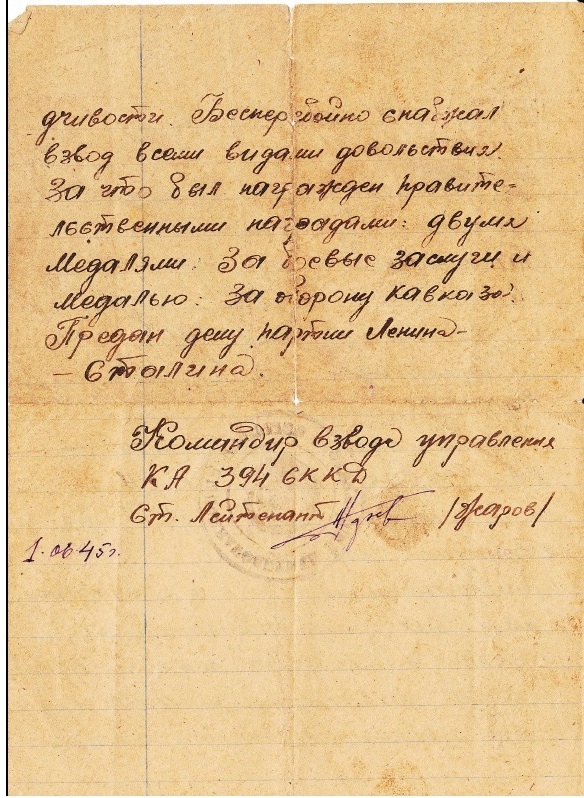 дчивости. Бесперебойно снабжал
взвод всеми видами довольствия.
За что был награжден правите-
льственными наградами: двумя
Медалями: За боевые заслуги и
Медалью: За оборону Кавказа.
Предан делу партии Ленина-
- Сталина.
Командир взвода управления
КА 394 6ККД
Ст. Лейтенант /Жаров/
1.06 45г.